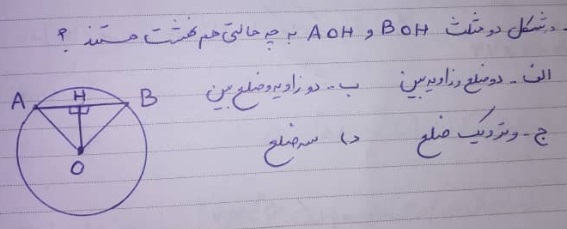 در شکل دو مثلث BOH و AOH به چه حالتی هم نهشت هستند ؟
الف - دو ضلع و زاویه بین ب - دو زاویه و ضلع بین
ج - وتر و یک ضلع د) سه ضلع
A H B
O